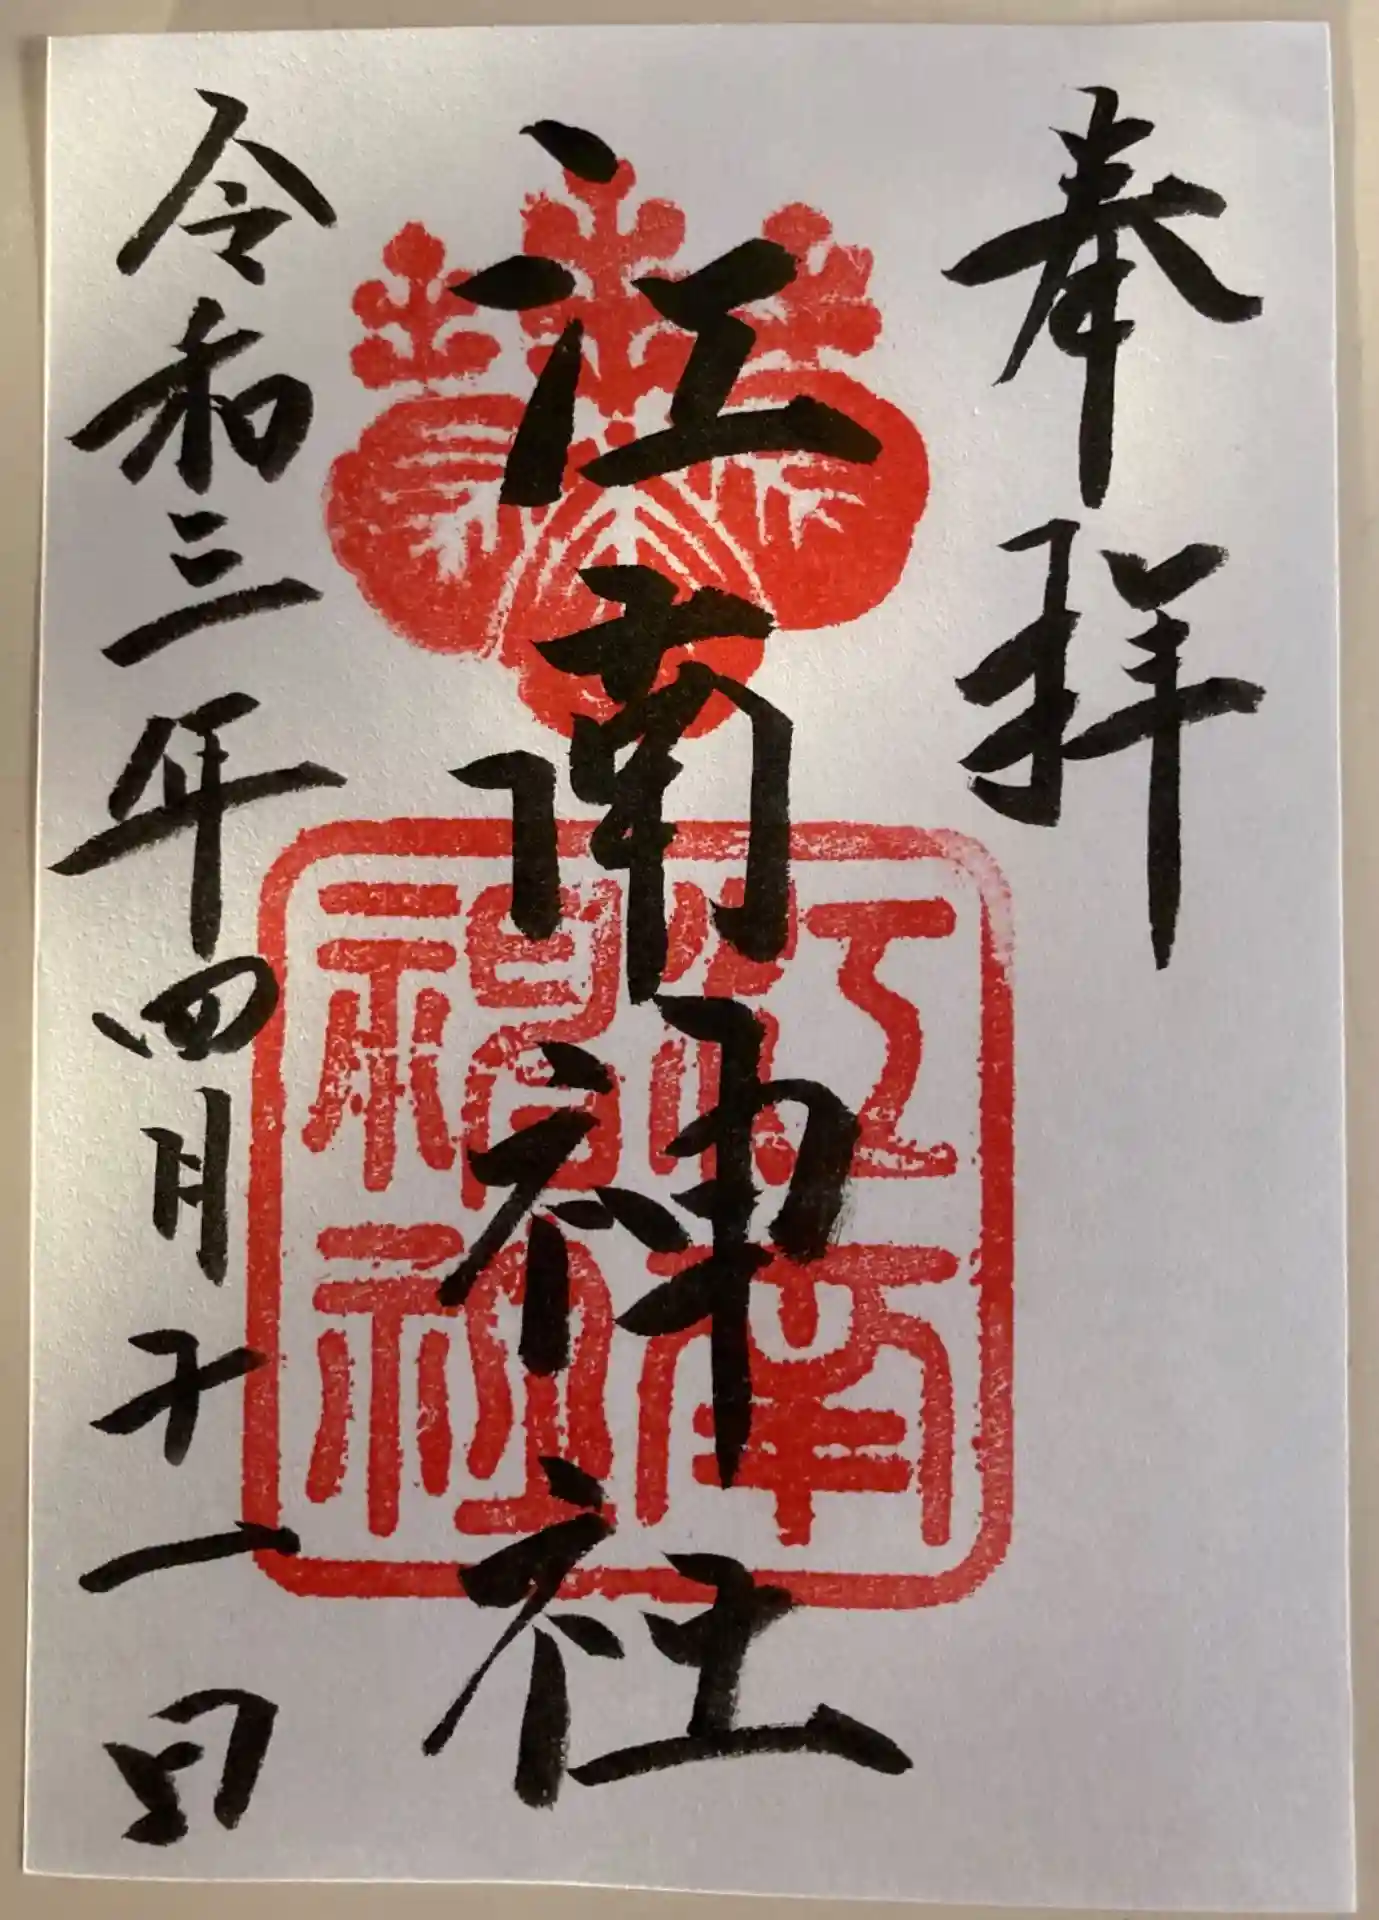 奉拝
江南神社
江南神社
令和三年四月廿一日